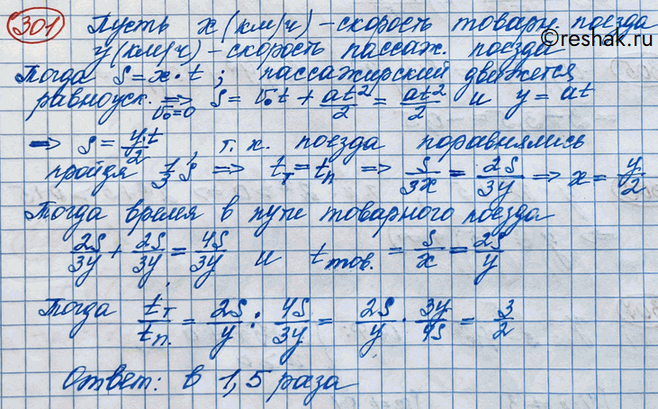 301 Пусть x (км/ч) – скорость товарн. поезда
©reshak.ru
y (км/ч) – скорость пассаж. поезда
Тогда S = x · t ; пассажирский движется
равноуск. ⇒ V₀=0 S = V₀t + at²/2 = at²/2 и y = at
⇒ S = y·t/2 , т. к. поезда поравнялись
пройдя 1/3 S ⇒ tт = tп ⇒ S/3x = 2S/3y ⇒ x = y/2
Тогда время в пути товарного поезда
2S/3y + 2S/3y = 4S/3y и tтов. = S/x = 2S/y
Тогда tт/tп. = 2S/y : 4S/3y = 2S/y · 3y/4S = 3/2
Ответ: в 1,5 раза